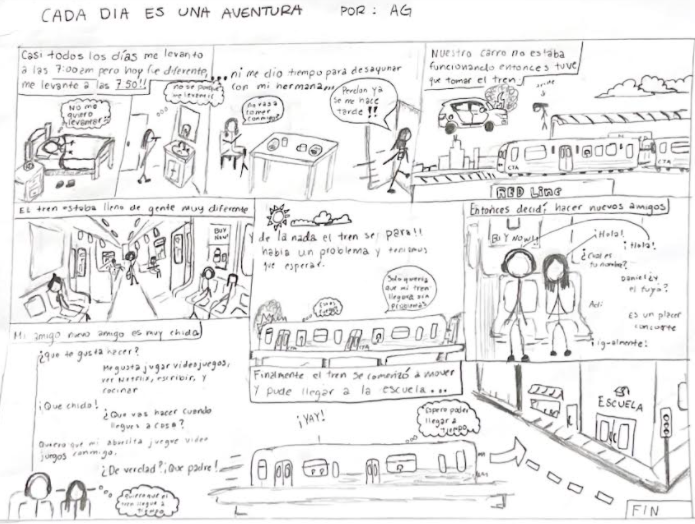 CADA DIA ES UNA AVENTURA POR: AG
Casi todos los días me levanto
a las 7:00am pero hoy fue diferente,
me levante a las 7:50!!
No me
quiero
levantar!!
no se porque
me levante!!
... ni me dio tiempo para desayunar
con mi hermana...
comer
conmigo?
Perdon ya
se me hace
tarde!!
Nuestro carro no estaba
funcionando entonces tuve
que tomar el tren!
CTA
CTA
RED Line
El tren estaba lleno de gente muy diferente
BUY
NOW!
Y de la nada el tren se para!!
habia un problema y teniamos
que esperar.
Solo queria
que mi tren
llegara sin
problemas
Entonces decidí hacer nuevos amigos
BUY NOW!
¡Hola!
¡Hola!
¿Cual es
tu nombre?
Daniel ¿y
el tuyo?
Es un placer
conocerte
¡igualmente!
Mi amigo nuevo amigo es muy chido
¿Que te gusta hacer?
Me gusta jugar videojuegos,
ver Netflix, escribir, y
cocinar
¡Que chido!
¿Que vas hacer cuando
llegues a casa?
Quiero que mi abuelita juegue video
juegos conmigo.
¿De verdad? ¡Que padre!
Quiero que el
tren llegue a
tiempo
Finalmente el tren se comenzó a mover
y pude llegar a la escuela...
¡YAY!
Espero poder
llegar a
tiempo
ESCUELA
FIN